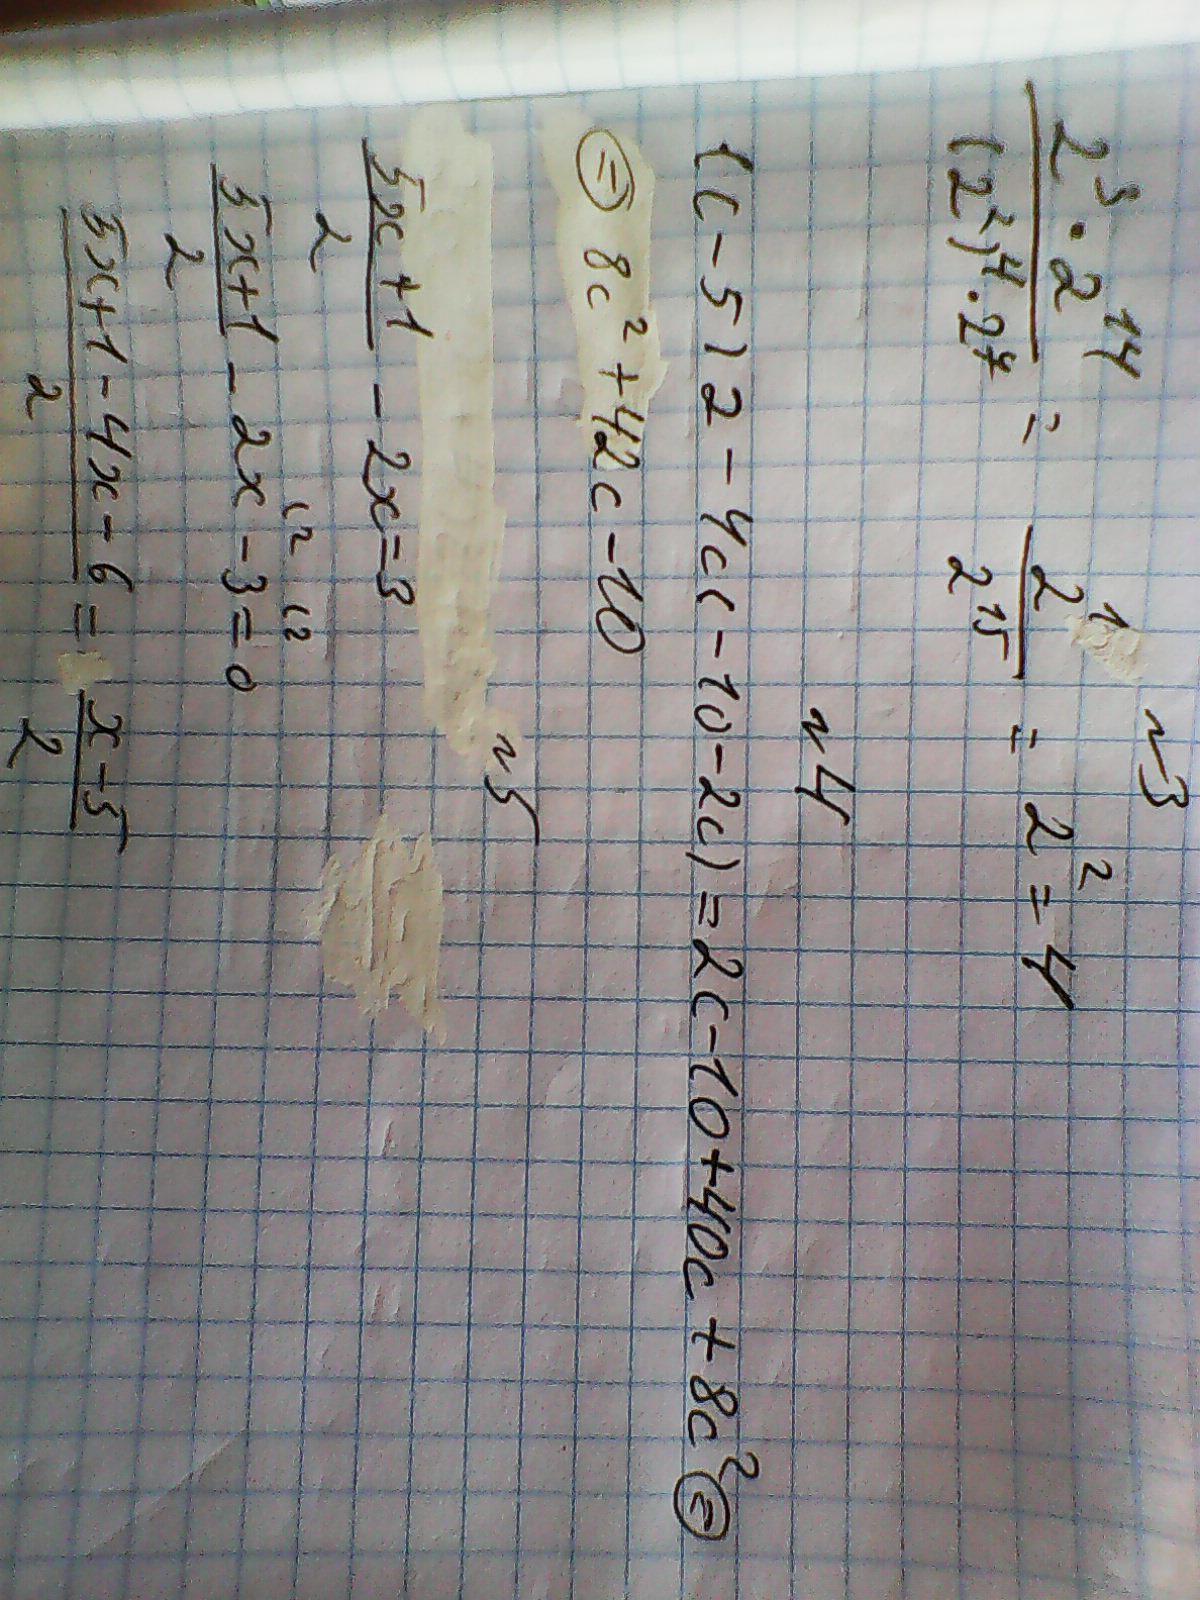 n3
2³ · 2¹⁴ / (2²)⁴ · 2⁷ = 2¹ / 2¹⁵ = 2² = 4
n4
(c - 5)2 - 4c(-10 - 2c) = 2c - 10 + 40c + 8c² =
= 8c² + 42c - 10
n5
5x + 1 / 2 - 2x = 3
5x + 1 / 2 - 2x (2 - 3 (2 = 0
5x + 1 - 4x - 6 / 2 = x - 5 / 2